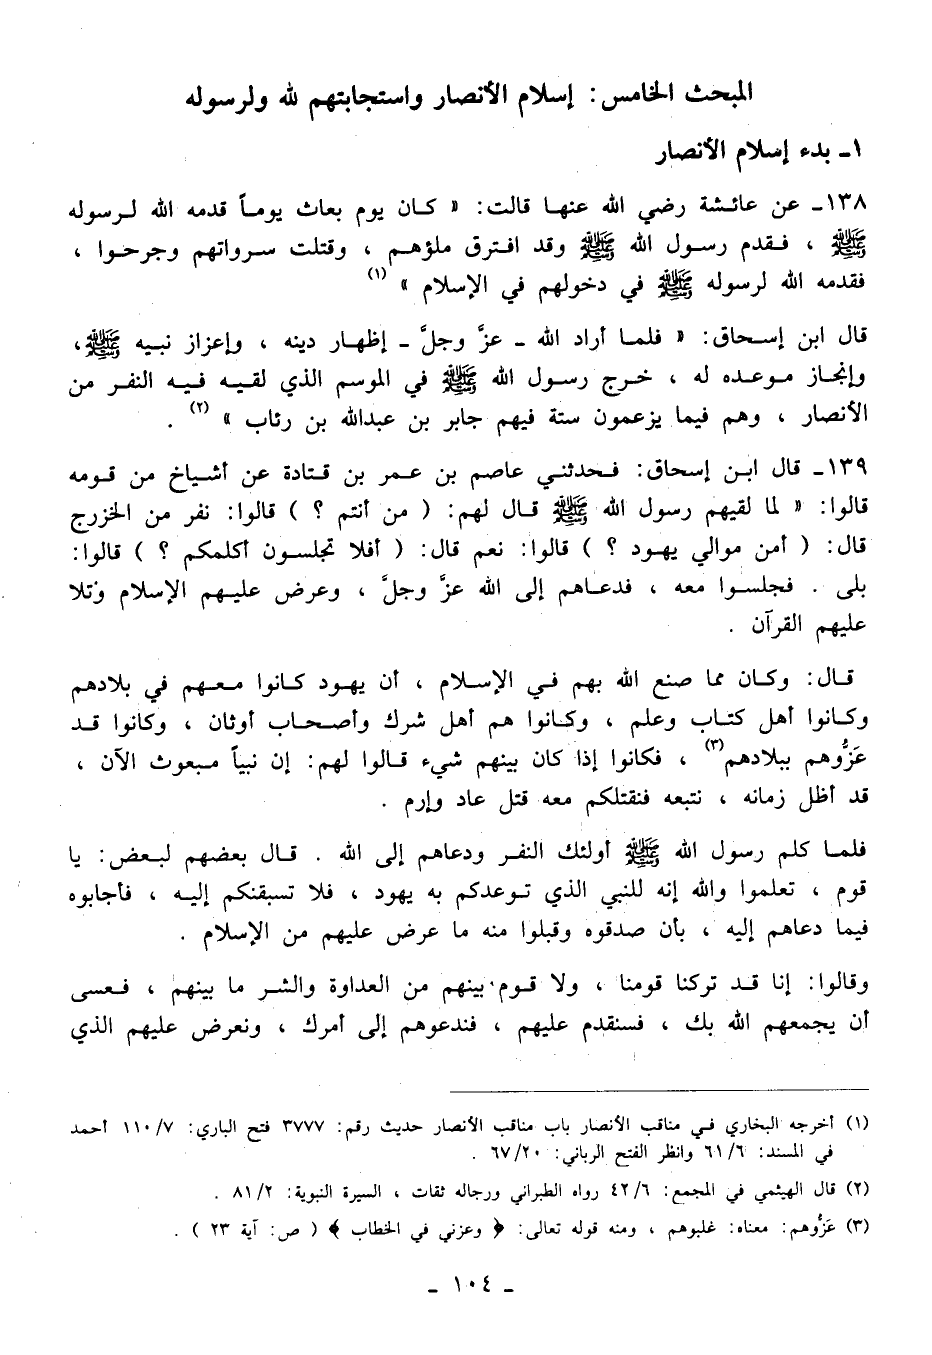 المبحث الخامس: إسلام الأنصار واستجابتهم لله ولرسوله
١ـ بدء إسلام الأنصار
١٣٨ـ عن عائشة رضي الله عنها قالت: « كان يوم بعاث يوماً قدمه الله لرسوله
ﷺ ، فقدم رسول الله ﷺ وقد افترق ملؤهم ، وقتلت سرواتهم وجرحوا ،
فقدمه الله لرسوله ﷺ في دخولهم في الإسلام » (١)
قال ابن إسحاق: « فلما أراد الله ـ عزَّ وجلَّ ـ إظهار دينه ، وإعزاز نبيه ﷺ،
وإنجاز موعده له ، خرج رسول الله ﷺ في الموسم الذي لقيه فيه النفر من
الأنصار ، وهم فيما يزعمون ستة فيهم جابر بن عبدالله بن رئاب » (٢) .
١٣٩ـ قال ابن إسحاق: فحدثني عاصم بن عمر بن قتادة عن أشياخ من قومه
قالوا: « لما لقيهم رسول الله ﷺ قال لهم: ( من أنتم ؟ ) قالوا: نفر من الخزرج
قال: ( أمن موالي يهود ؟ ) قالوا: نعم قال: ( أفلا تجلسون أكلمكم ؟ ) قالوا:
بلى . فجلسوا معه ، فدعاهم إلى الله عزَّ وجلَّ ، وعرض عليهم الإسلام وتلا
عليهم القرآن .
قال: وكان مما صنع الله بهم في الإسلام ، أن يهود كانوا معهم في بلادهم
وكانوا أهل كتاب وعلم ، وكانوا هم أهل شرك وأصحاب أوثان ، وكانوا قد
عَزُّوهم ببلادهم(٣) ، فكانوا إذا كان بينهم شيء قالوا لهم: إن نبياً مبعوث الآن ،
قد أظل زمانه ، نتبعه فنقتلكم معه قتل عاد وإرم .
فلما كلم رسول الله ﷺ أولئك النفر ودعاهم إلى الله . قال بعضهم لبعض: يا
قوم ، تعلموا والله إنه للنبي الذي توعدكم به يهود ، فلا تسبقنكم إليه ، فأجابوه
فيما دعاهم إليه ، بأن صدقوه وقبلوا منه ما عرض عليهم من الإسلام .
وقالوا: إنا قد تركنا قومنا ، ولا قوم بينهم من العداوة والشر ما بينهم ، فعسى
أن يجمعهم الله بك ، فسنقدم عليهم ، فندعوهم إلى أمرك ، ونعرض عليهم الذي
(١) أخرجه البخاري في مناقب الأنصار باب مناقب الأنصار حديث رقم: ٣٧٧٧ فتح الباري: ١١٠/٧ أحمد
في المسند: ٦١/٦ وانظر الفتح الرباني: ٦٧/٢٠ .
(٢) قال الهيثمي في المجمع: ٤٢/٦ رواه الطبراني ورجاله ثقات ، السيرة النبوية: ٨١/٢ .
(٣) عَزُّوهم: معناه: غلبوهم ، ومنه قوله تعالى: ﴿ وعزني في الخطاب ﴾ ( ص: آية ٢٣ ) .
ـ ١٠٤ ـ